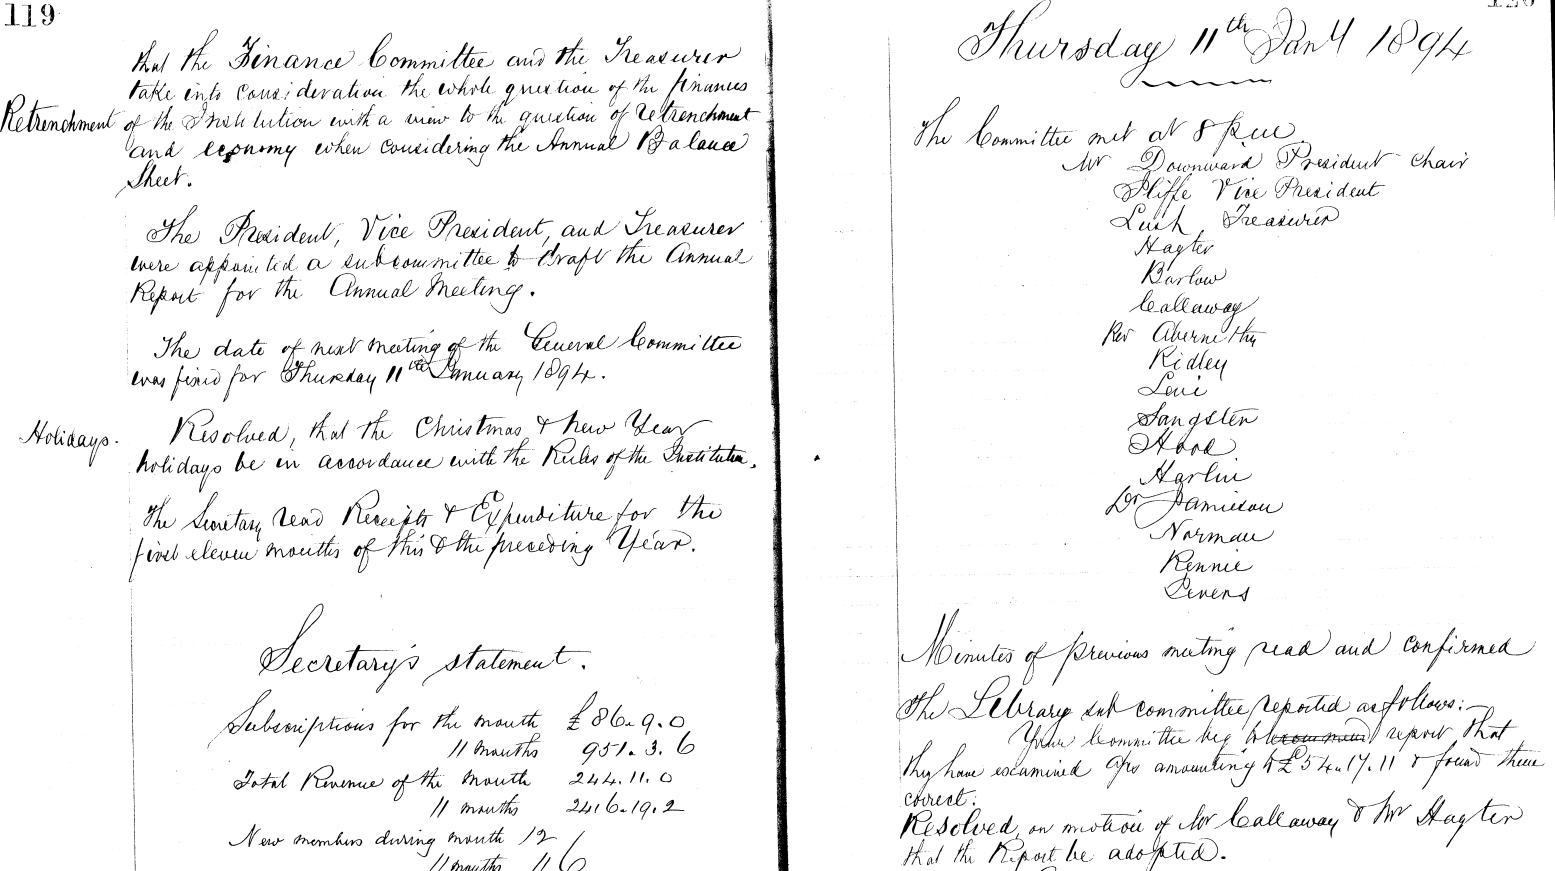 119
that the Finance Committee and the Treasurer
take into consideration the whole question of the finances
Retrenchment
of the Institution with a view to the question of retrenchment
and economy when considering the Annual Balance
Sheet.
The President, Vice President, and Treasurer
were appointed a subcommittee to draft the Annual
Report for the Annual Meeting.
The date of next meeting of the General Committee
was fixed for Thursday 11th January 1894.
Holidays.
Resolved, that the Christmas & New Year
holidays be in accordance with the Rules of the Institution.
The Secretary read Receipts & Expenditure for the
first eleven months of this & the preceding Year.
Secretary's statement.
Subscriptions for the month £86.9.0
11 months 951.3.6
Total Revenue of the month 244.11.0
11 months 2416.19.2
New members during month 12
11 months 116
Thursday 11th Jany 1894
The Committee met at 8 p.m
Mr Downward President Chair
Iliffe Vice President
Lush Treasurer
Hayter
Barlow
Callaway
Rev Abernethy
Ridley
Levi
Sangster
Hood
Harlin
Dr Jamieson
Norman
Rennie
Levens
Minutes of previous meeting read and confirmed
The Library sub committee reported as follows:-
Your Committee beg to recommend report that
they have examined a/cs amounting to £54.17.11 & found them
correct:
Resolved, on motion of Mr Callaway & Mr Hayter
that the Report be adopted.